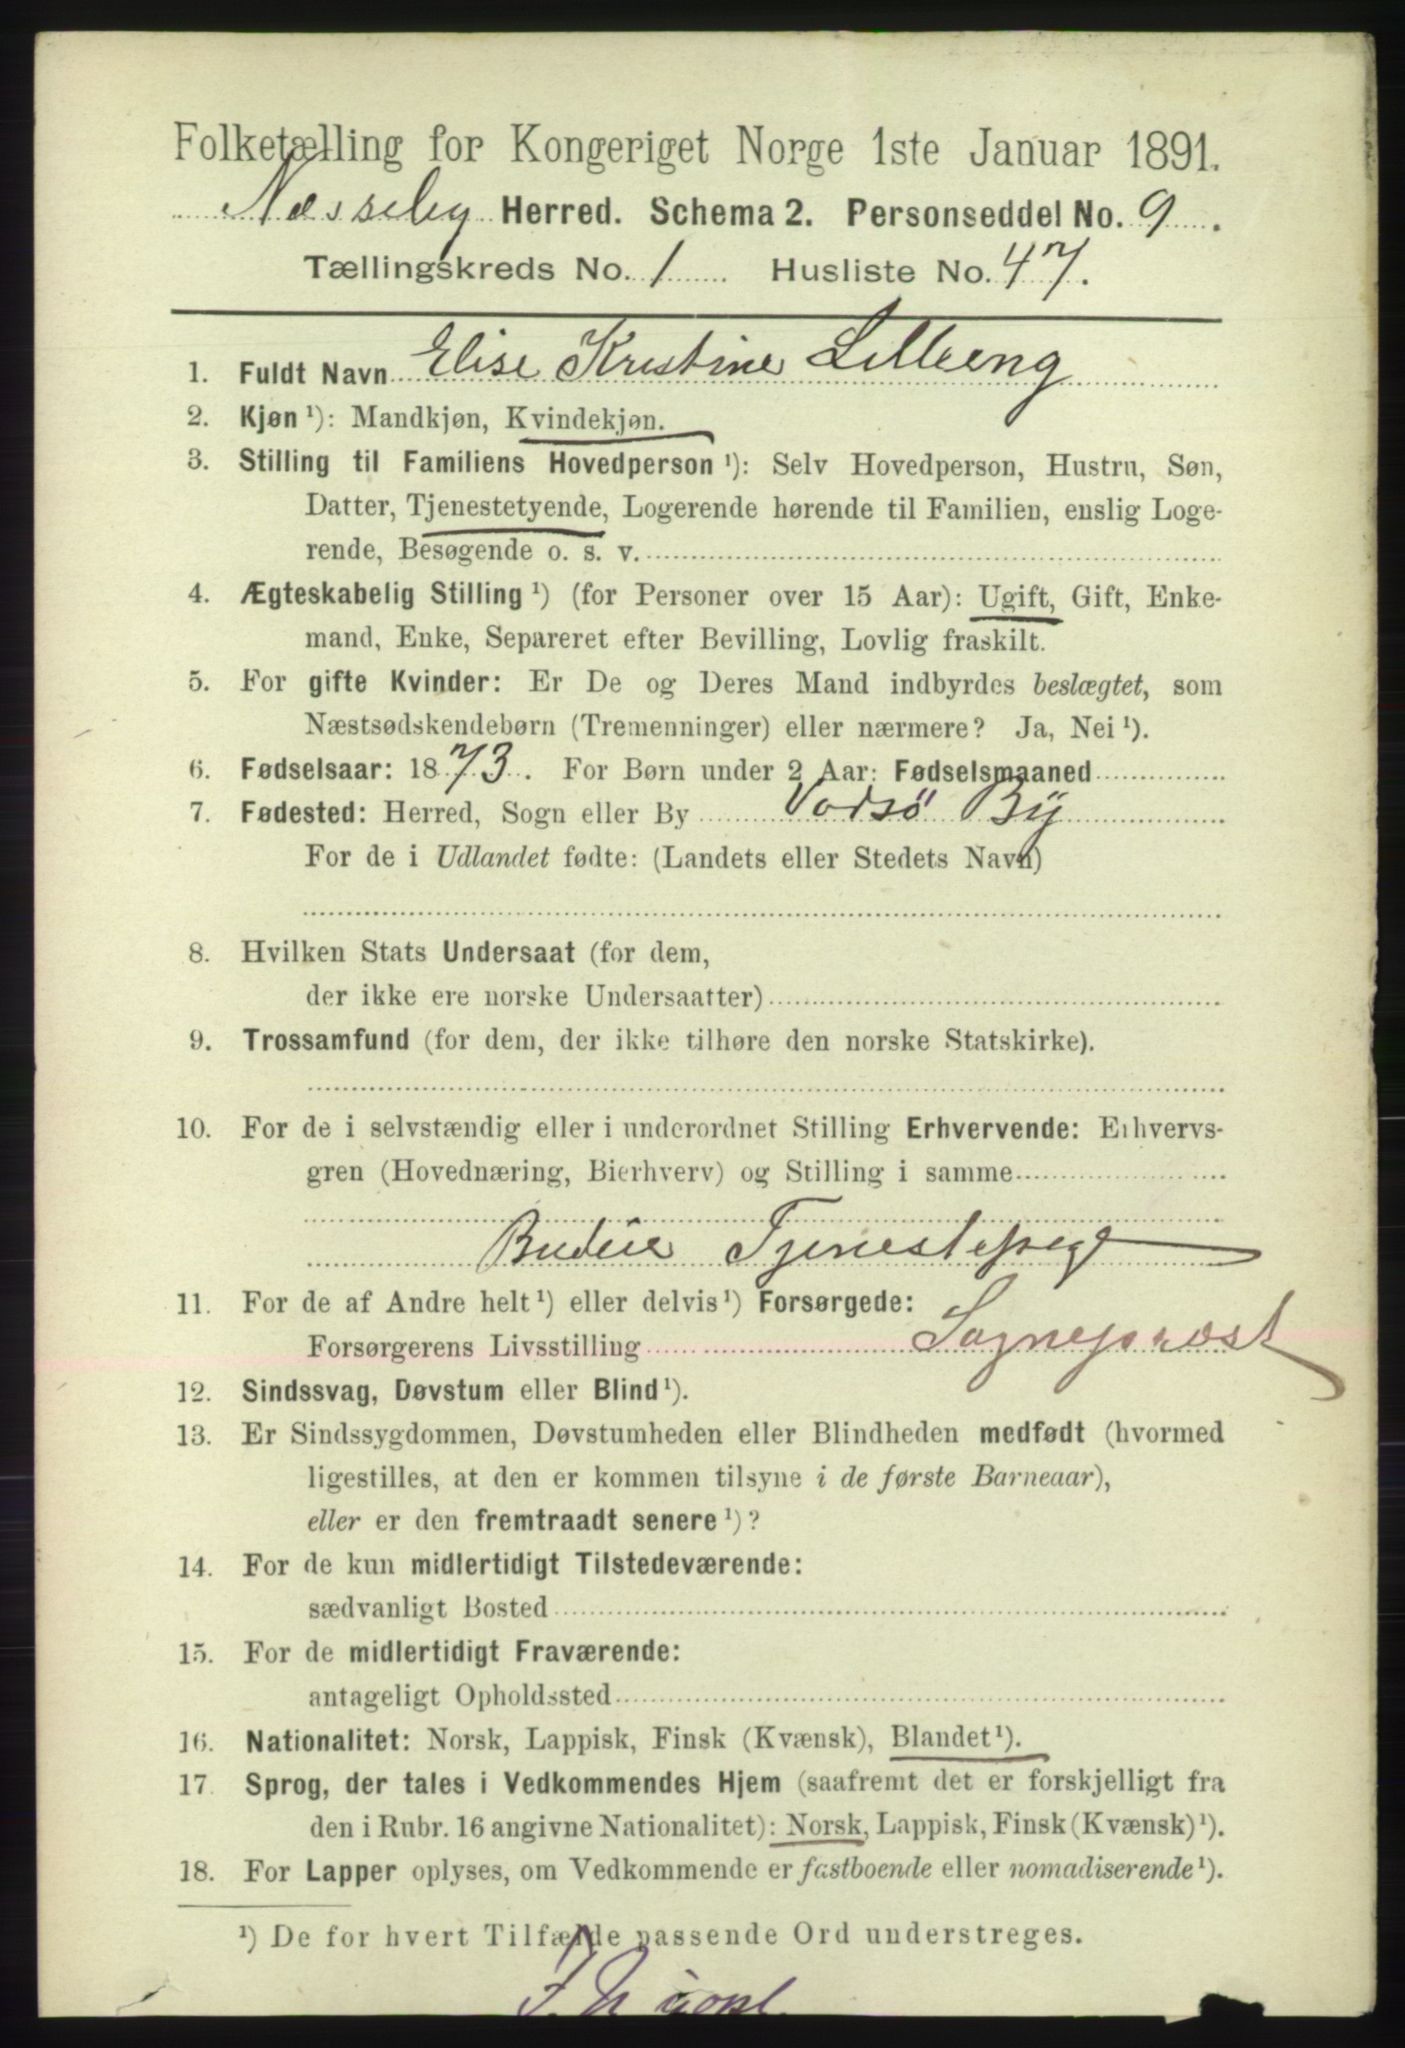 Folketælling for Kongeriget Norge 1ste Januar 1891.
Næsseby Herred. Schema 2. Personseddel No. 9.
Tællingskreds No. 1 Husliste No. 47.
1. Fuldt Navn Elise Kristine Lilleeng
2. Kjøn ¹): Mandkjøn, Kvindekjøn.
3. Stilling til Familiens Hovedperson ¹): Selv Hovedperson, Hustru, Søn,
Datter, Tjenestetyende, Logerende hørende til Familien, enslig Loge-
rende, Besøgende o. s. v.
4. Ægteskabelig Stilling ¹) (for Personer over 15 Aar): Ugift, Gift, Enke-
mand, Enke, Separeret efter Bevilling, Lovlig fraskilt.
5. For gifte Kvinder: Er De og Deres Mand indbyrdes beslægtet, som
Næstsødskendebørn (Tremenninger) eller nærmere? Ja, Nei ¹).
6. Fødselsaar: 1873. For Børn under 2 Aar: Fødselsmaaned
7. Fødested: Herred, Sogn eller By Vadsö By
For de i Udlandet fødte: (Landets eller Stedets Navn)
8. Hvilken Stats Undersaat (for dem,
der ikke ere norske Undersaatter)
9. Trossamfund (for dem, der ikke tilhøre den norske Statskirke).
10. For de i selvstændig eller i underordnet Stilling Erhvervende: Erhvervs-
gren (Hovednæring, Bierhverv) og Stilling i samme
Budeie Tjenestepige
11. For de af Andre helt ¹) eller delvis ¹) Forsørgede:
Forsørgerens Livsstilling Sognepræst
12. Sindssvag, Døvstum eller Blind ¹).
13. Er Sindssygdommen, Døvstumheden eller Blindheden medfødt (hvormed
ligestilles, at den er kommen tilsyne i de første Barneaar),
eller er den fremtraadt senere ¹)?
14. For de kun midlertidigt Tilstedeværende:
sædvanligt Bosted
15. For de midlertidigt Fraværende:
antageligt Opholdssted
16. Nationalitet: Norsk, Lappisk, Finsk (Kvænsk), Blandet ¹).
17. Sprog, der tales i Vedkommendes Hjem (saafremt det er forskjelligt fra
den i Rubr. 16 angivne Nationalitet): Norsk, Lappisk, Finsk (Kvænsk) ¹).
18. For Lapper oplyses, om Vedkommende er fastboende eller nomadiserende ¹).
¹) De for hvert Tilfælde passende Ord understreges.